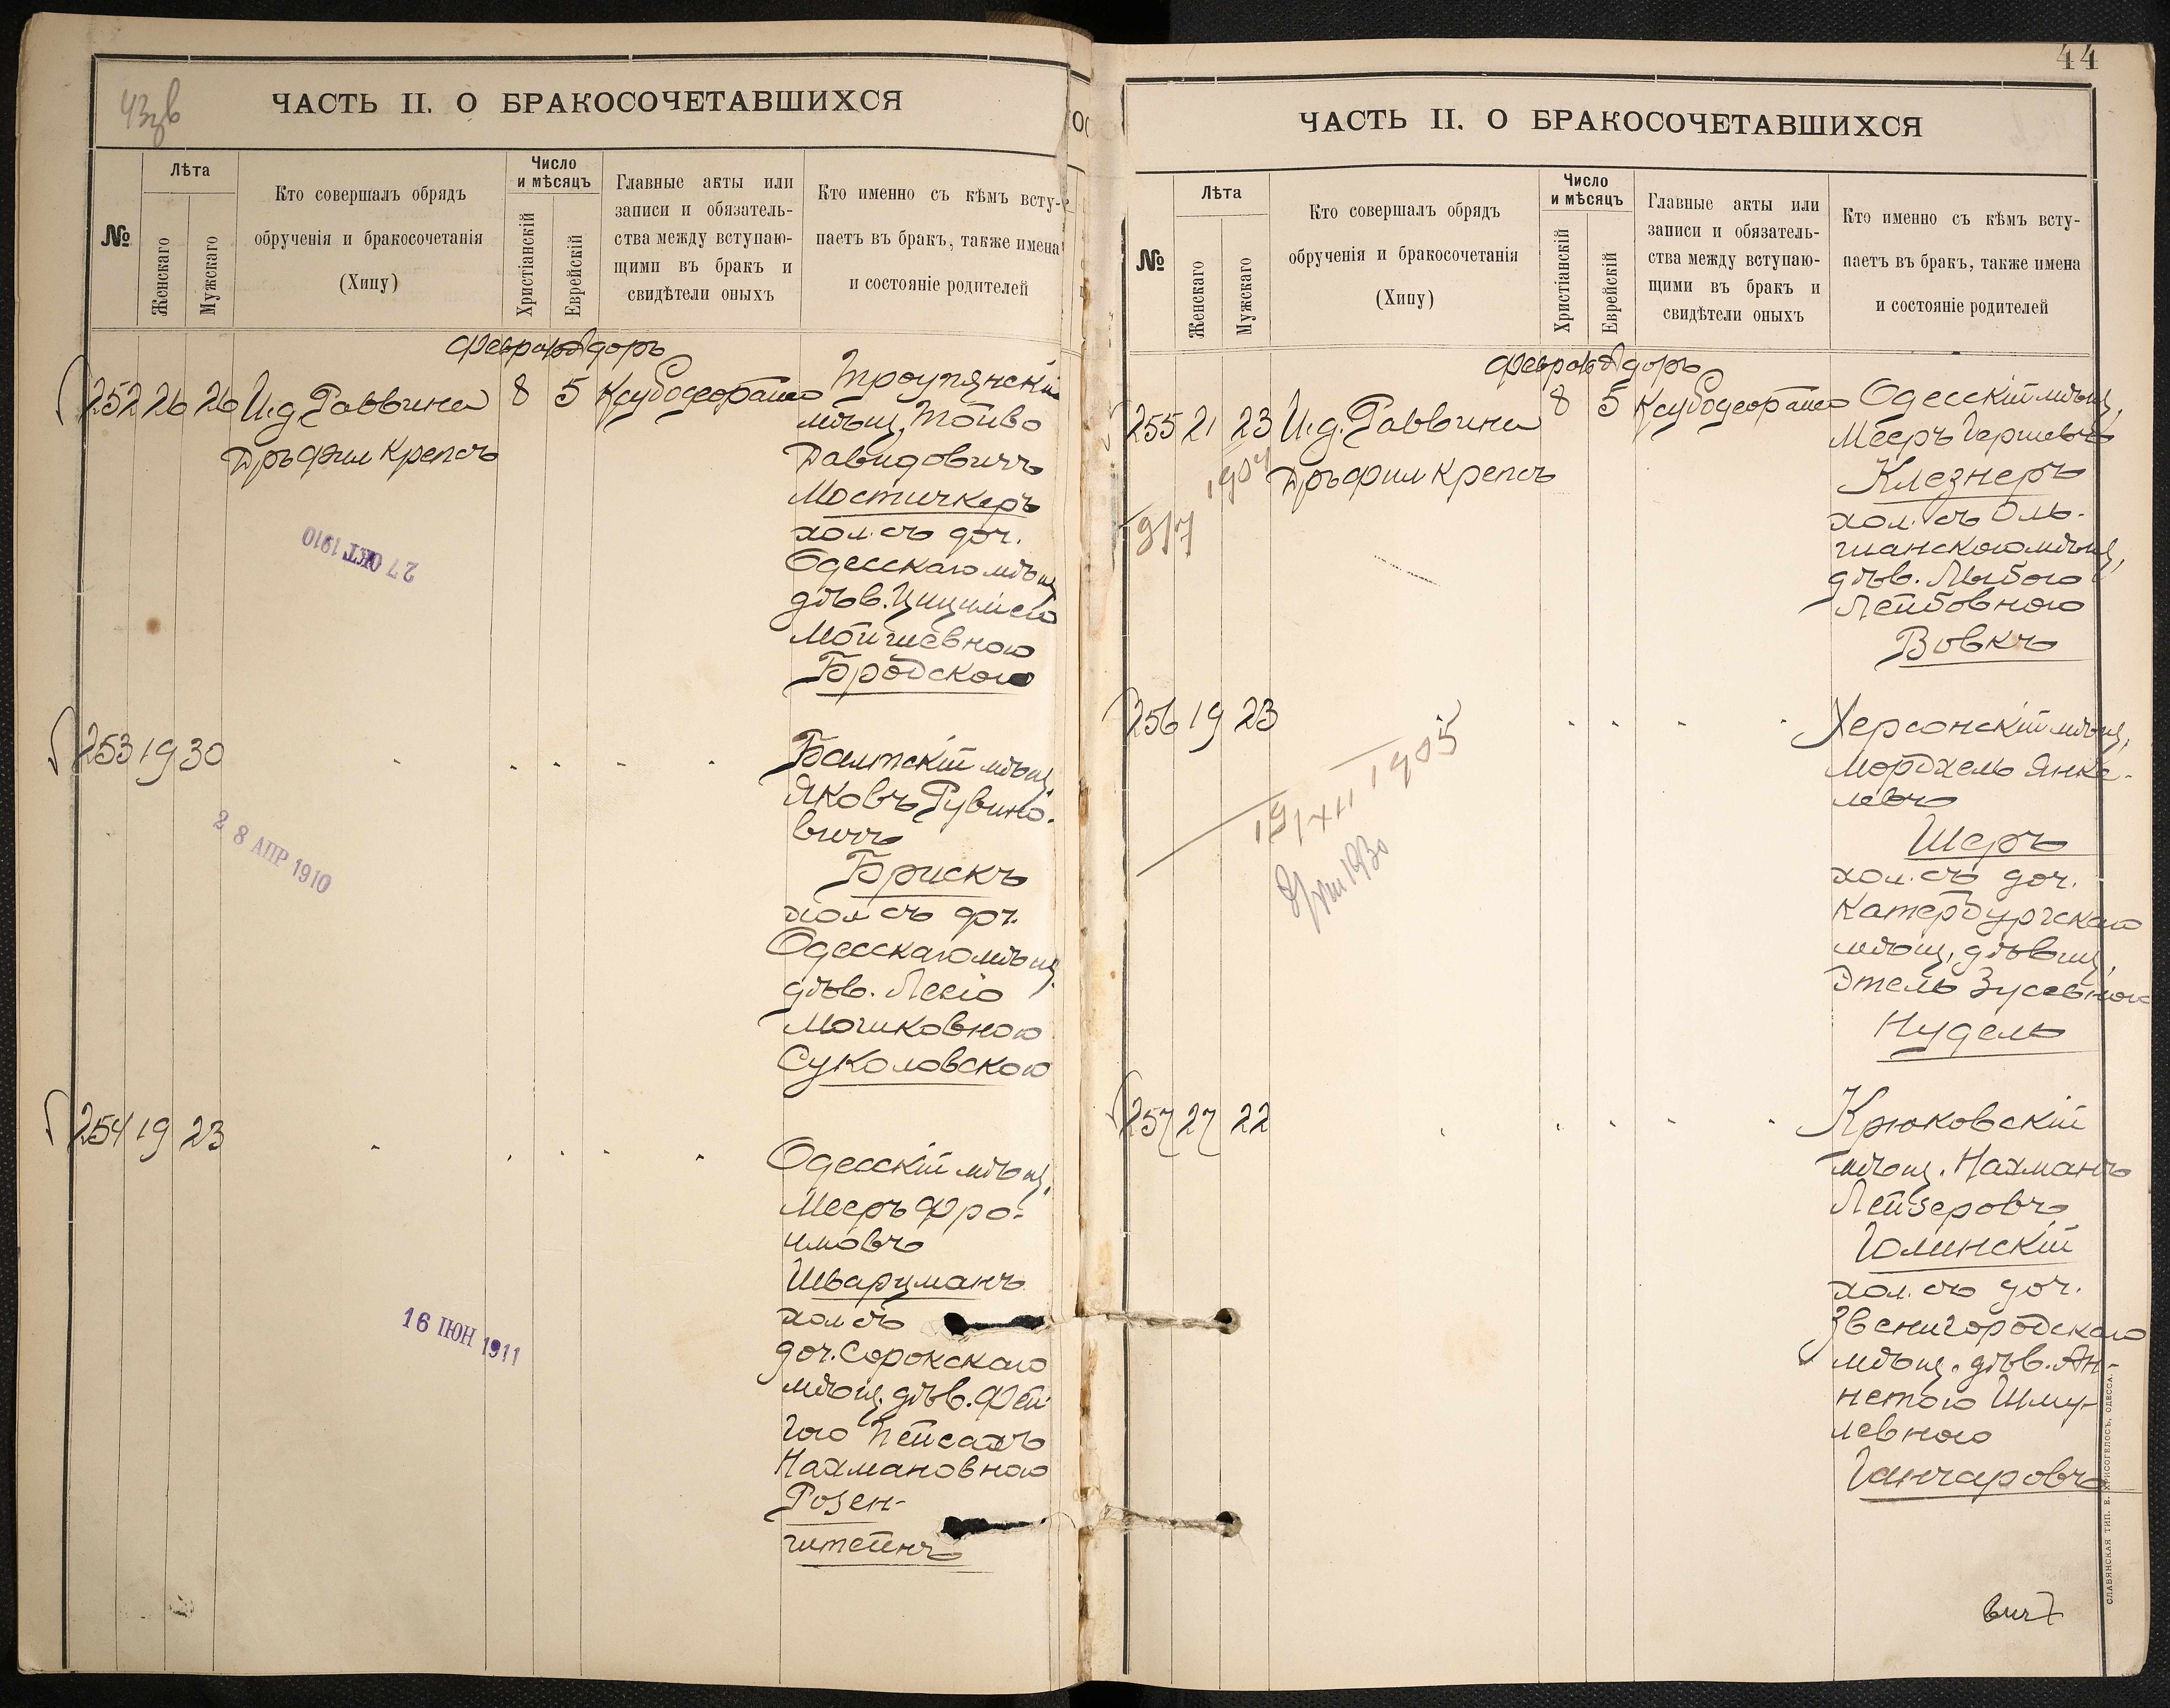 43зв
ЧАСТЬ II. О БРАКОСОЧЕТАВШИХСЯ
№
Лѣта
Женскаго
Мужскаго
Кто совершалъ обрядъ
обрученія и бракосочетанія
(Хипу)
Число
и мѣсяцъ
Христіанскій
Еврейскій
Главные акты или
записи и обязатель-
ства между вступаю-
щими въ бракъ и
свидѣтели оныхъ
Кто именно съ кѣмъ всту-
паетъ въ бракъ, также имена
и состояніе родителей
Адоръ
252 26 26 И.д. Раввина 8 5
Дръ Фил Крепсъ
мѣщ. Тойво
Давидовичъ
Мостичкеръ
хол. съ доч.
Одесскаго мѣщ.
дѣв.
Мойшевною
Бродскою
27 ОКТ 1910
253 19 30
Балтскій мѣщ.
Яковъ Рувино-
вичъ
Брискъ
хол съ доч.
Одесскаго мѣщ.
дѣв. Леею
Мошковною
Суколовскою
28 АПР 1910
254 19 23
Одесскій мѣщ.
Мееръ Фро-
имовъ
Шварцманъ
хол съ
доч. Сорокскаго
мѣщ. дѣв. Фей-
гою Пейсахъ
Нахмановною
Розен-
штейнъ
16 ІЮН 1911
44
ЧАСТЬ II. О БРАКОСОЧЕТАВШИХСЯ
№
Лѣта
Женскаго
Мужскаго
Кто совершалъ обрядъ
обрученія и бракосочетанія
(Хипу)
Число
и мѣсяцъ
Христіанскій
Еврейскій
Главные акты или
записи и обязатель-
ства между вступаю-
щими въ бракъ и
свидѣтели оныхъ
Кто именно съ кѣмъ всту-
паетъ въ бракъ, также имена
и состояніе родителей
Адоръ
255 21 23 И.д. Раввина 8 5
Дръ Фил Крепсъ
Одесскій мѣщ.
Мееръ Гершевъ
Клезнеръ
хол. съ Оль-
шанскою мѣщ.
дѣв. Лыбою
Лейбовною
Вовкъ
256 19 23
Херсонскій мѣщ.
Мордхель Янке-
левъ
Шеръ
хол. съ доч.
Катербургскаго
мѣщ. дѣвиц.
Этель Зусевною
Нудель
19/XII 1905
257 27 22
Крюковскій
мѣщ. Нахманъ
Лейзеровъ
Юлинскій
хол. съ доч.
Звенигородскаго
мѣщ. дѣв. Ан-
нетою Шму-
левною
Ганчаровъ
СЛАВЯНСКАЯ ТИП. Е. ХРИСОГЕЛОСЪ, ОДЕССА.